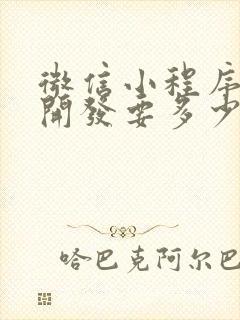 微信小程序
開發要多少
哈巴克阿尔巴